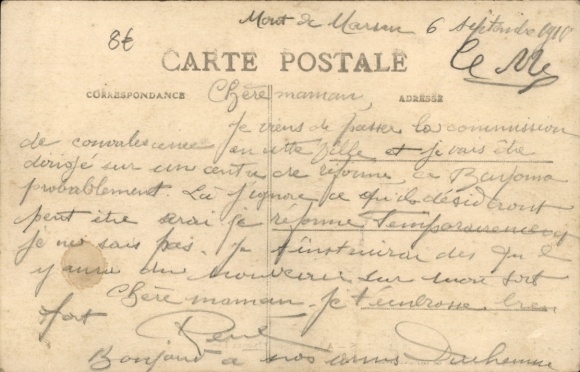 Mont de Marsan 6 septembre 1918
8€
CARTE POSTALE
CORRESPONDANCE
ADRESSE
Chère maman,
Je viens de passer la commission
de convalescence en cette ville et je vais être
dirigé sur un centre de réforme, à Bayonne
probablement. Là j'ignore ce qu'ils désideront
peut être serai je reformé Temporairement
je ne sais pas. Je t'instruirai dès qu'il
y aura du nouveau sur mon sort
Chère maman, je t'embrasse bien
fort
René
Bonjour à nos amis Duchenne